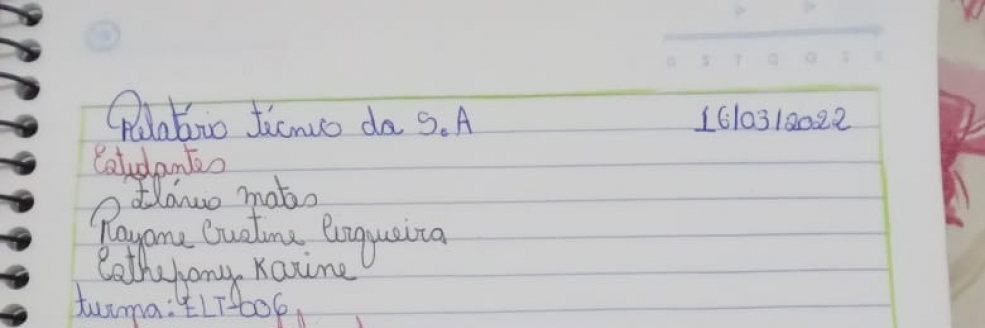 D S T Q Q S S
Relatório técnico da S.A 16/03/2022
Estudantes
Flávio matos
Rayane Cristine Cerqueira
Esthefany Karine
turma: ELT-006